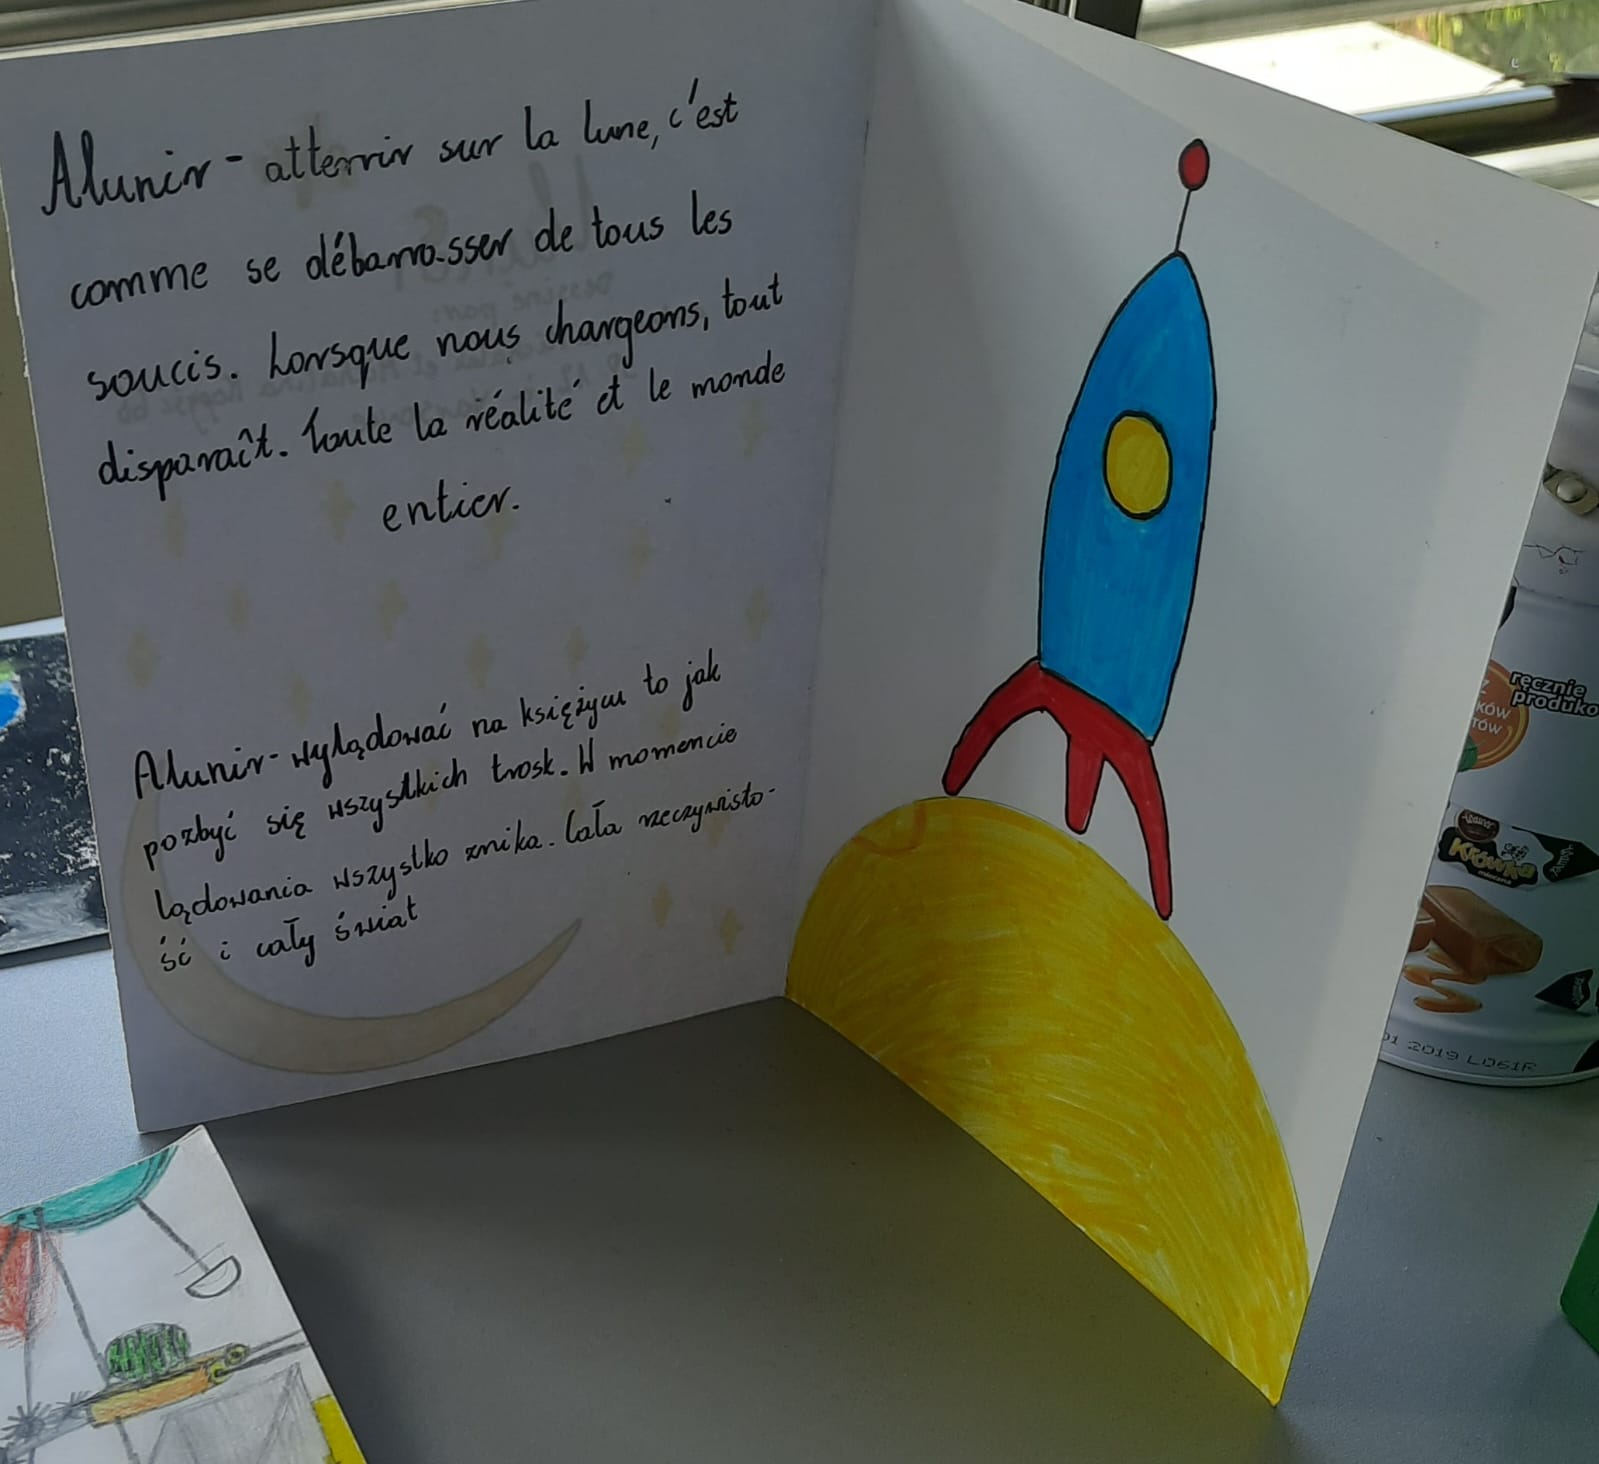 Alunir - atterrir sur la lune, c'est
comme se débarrasser de tous les
soucis. Lorsque nous chargeons, tout
disparaît. Toute la réalité et le monde
entier.
Alunir - wylądować na księżycu to jak
pozbyć się wszystkich trosk. W momencie
lądowania wszystko znika. Cała rzeczywisto-
ść i cały świat
ręcznie
produko
KÓW
TÓW
Krówka
01 2019 L061R